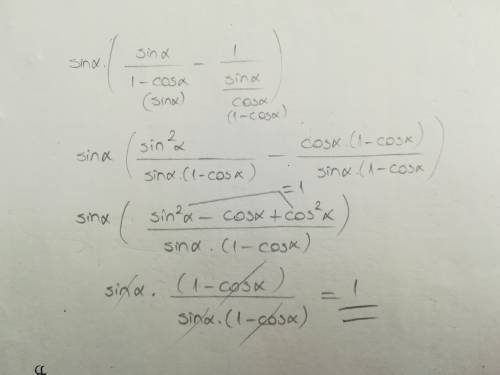 sinα · ( sinα / (1 - cosα) - 1 / (sinα / cosα) )
(sinα) (1-cosα)
sinα ( sin²α / (sinα · (1-cosα)) - cosα · (1-cosα) / (sinα · (1-cosα) )
= 1
sinα ( (sin²α - cosα + cos²α) / (sinα · (1-cosα)) )
sinα · (1-cosα) / (sinα · (1-cosα)) = 1